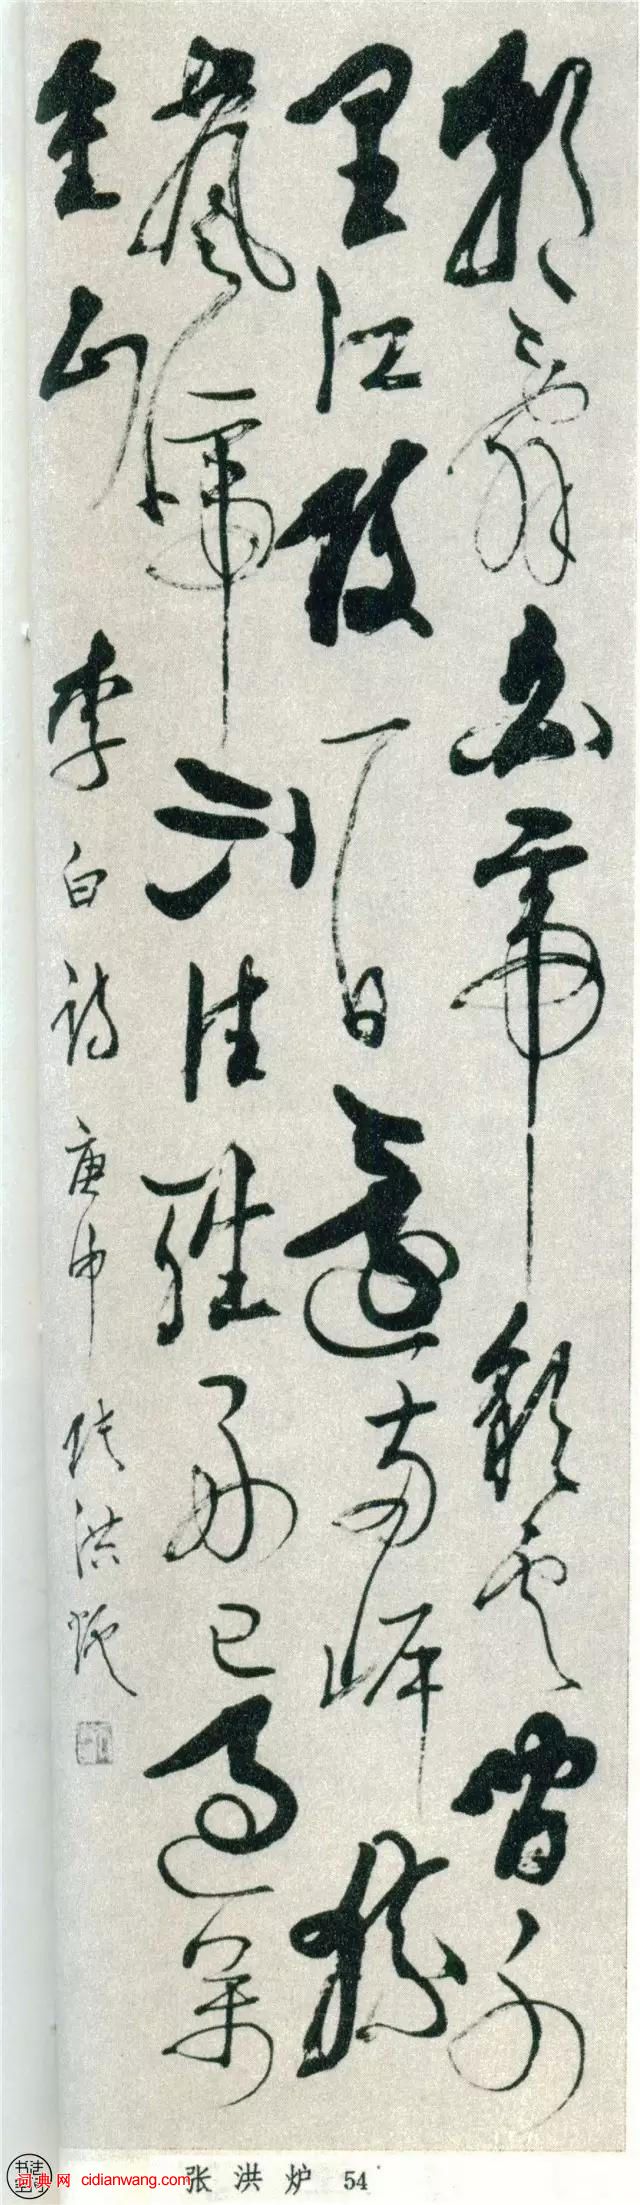 朝辞白帝彩云間千
里江陵一日還两岸猿
聲啼不住輕舟已過萬
重山 李白诗 庚申 张洪炉
张洪炉 54
词典网 cidianwang.com